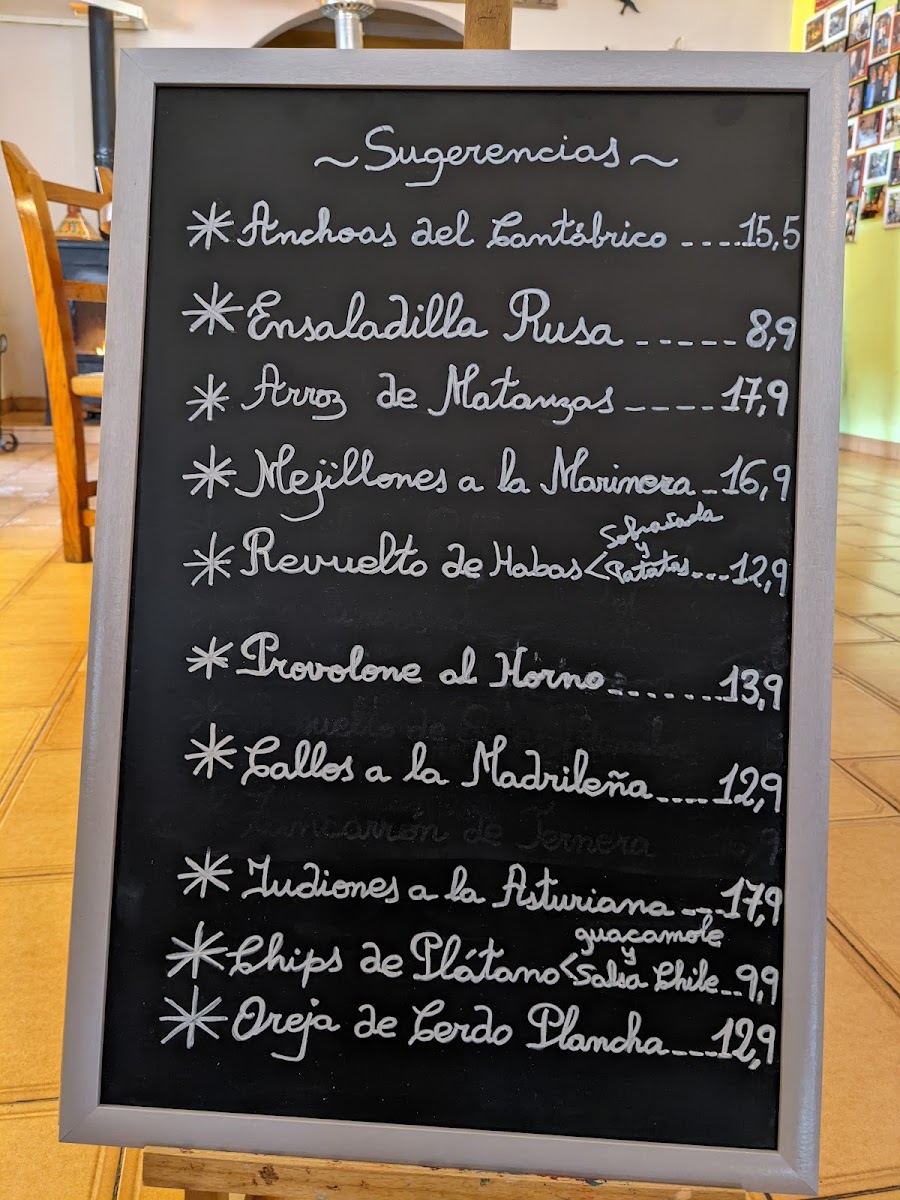 ~Sugerencias~
Anchoas del Cantábrico ....15,5
Ensaladilla Rusa ----- 8,9
Arroz de Matanzas ---- 17,9
Mejillones a la Marinera - 16,9
Revuelto de Habas < Sobrasada y Patatas --- 12,9
Provolone al Horno ....... 13,9
Callos a la Madrileña .... 12,9
Judiones a la Asturiana --- 17,9
Chips de Plátano < guacamole y Salsa Chile -- 9,9
Oreja de Cerdo Plancha ---- 12,9